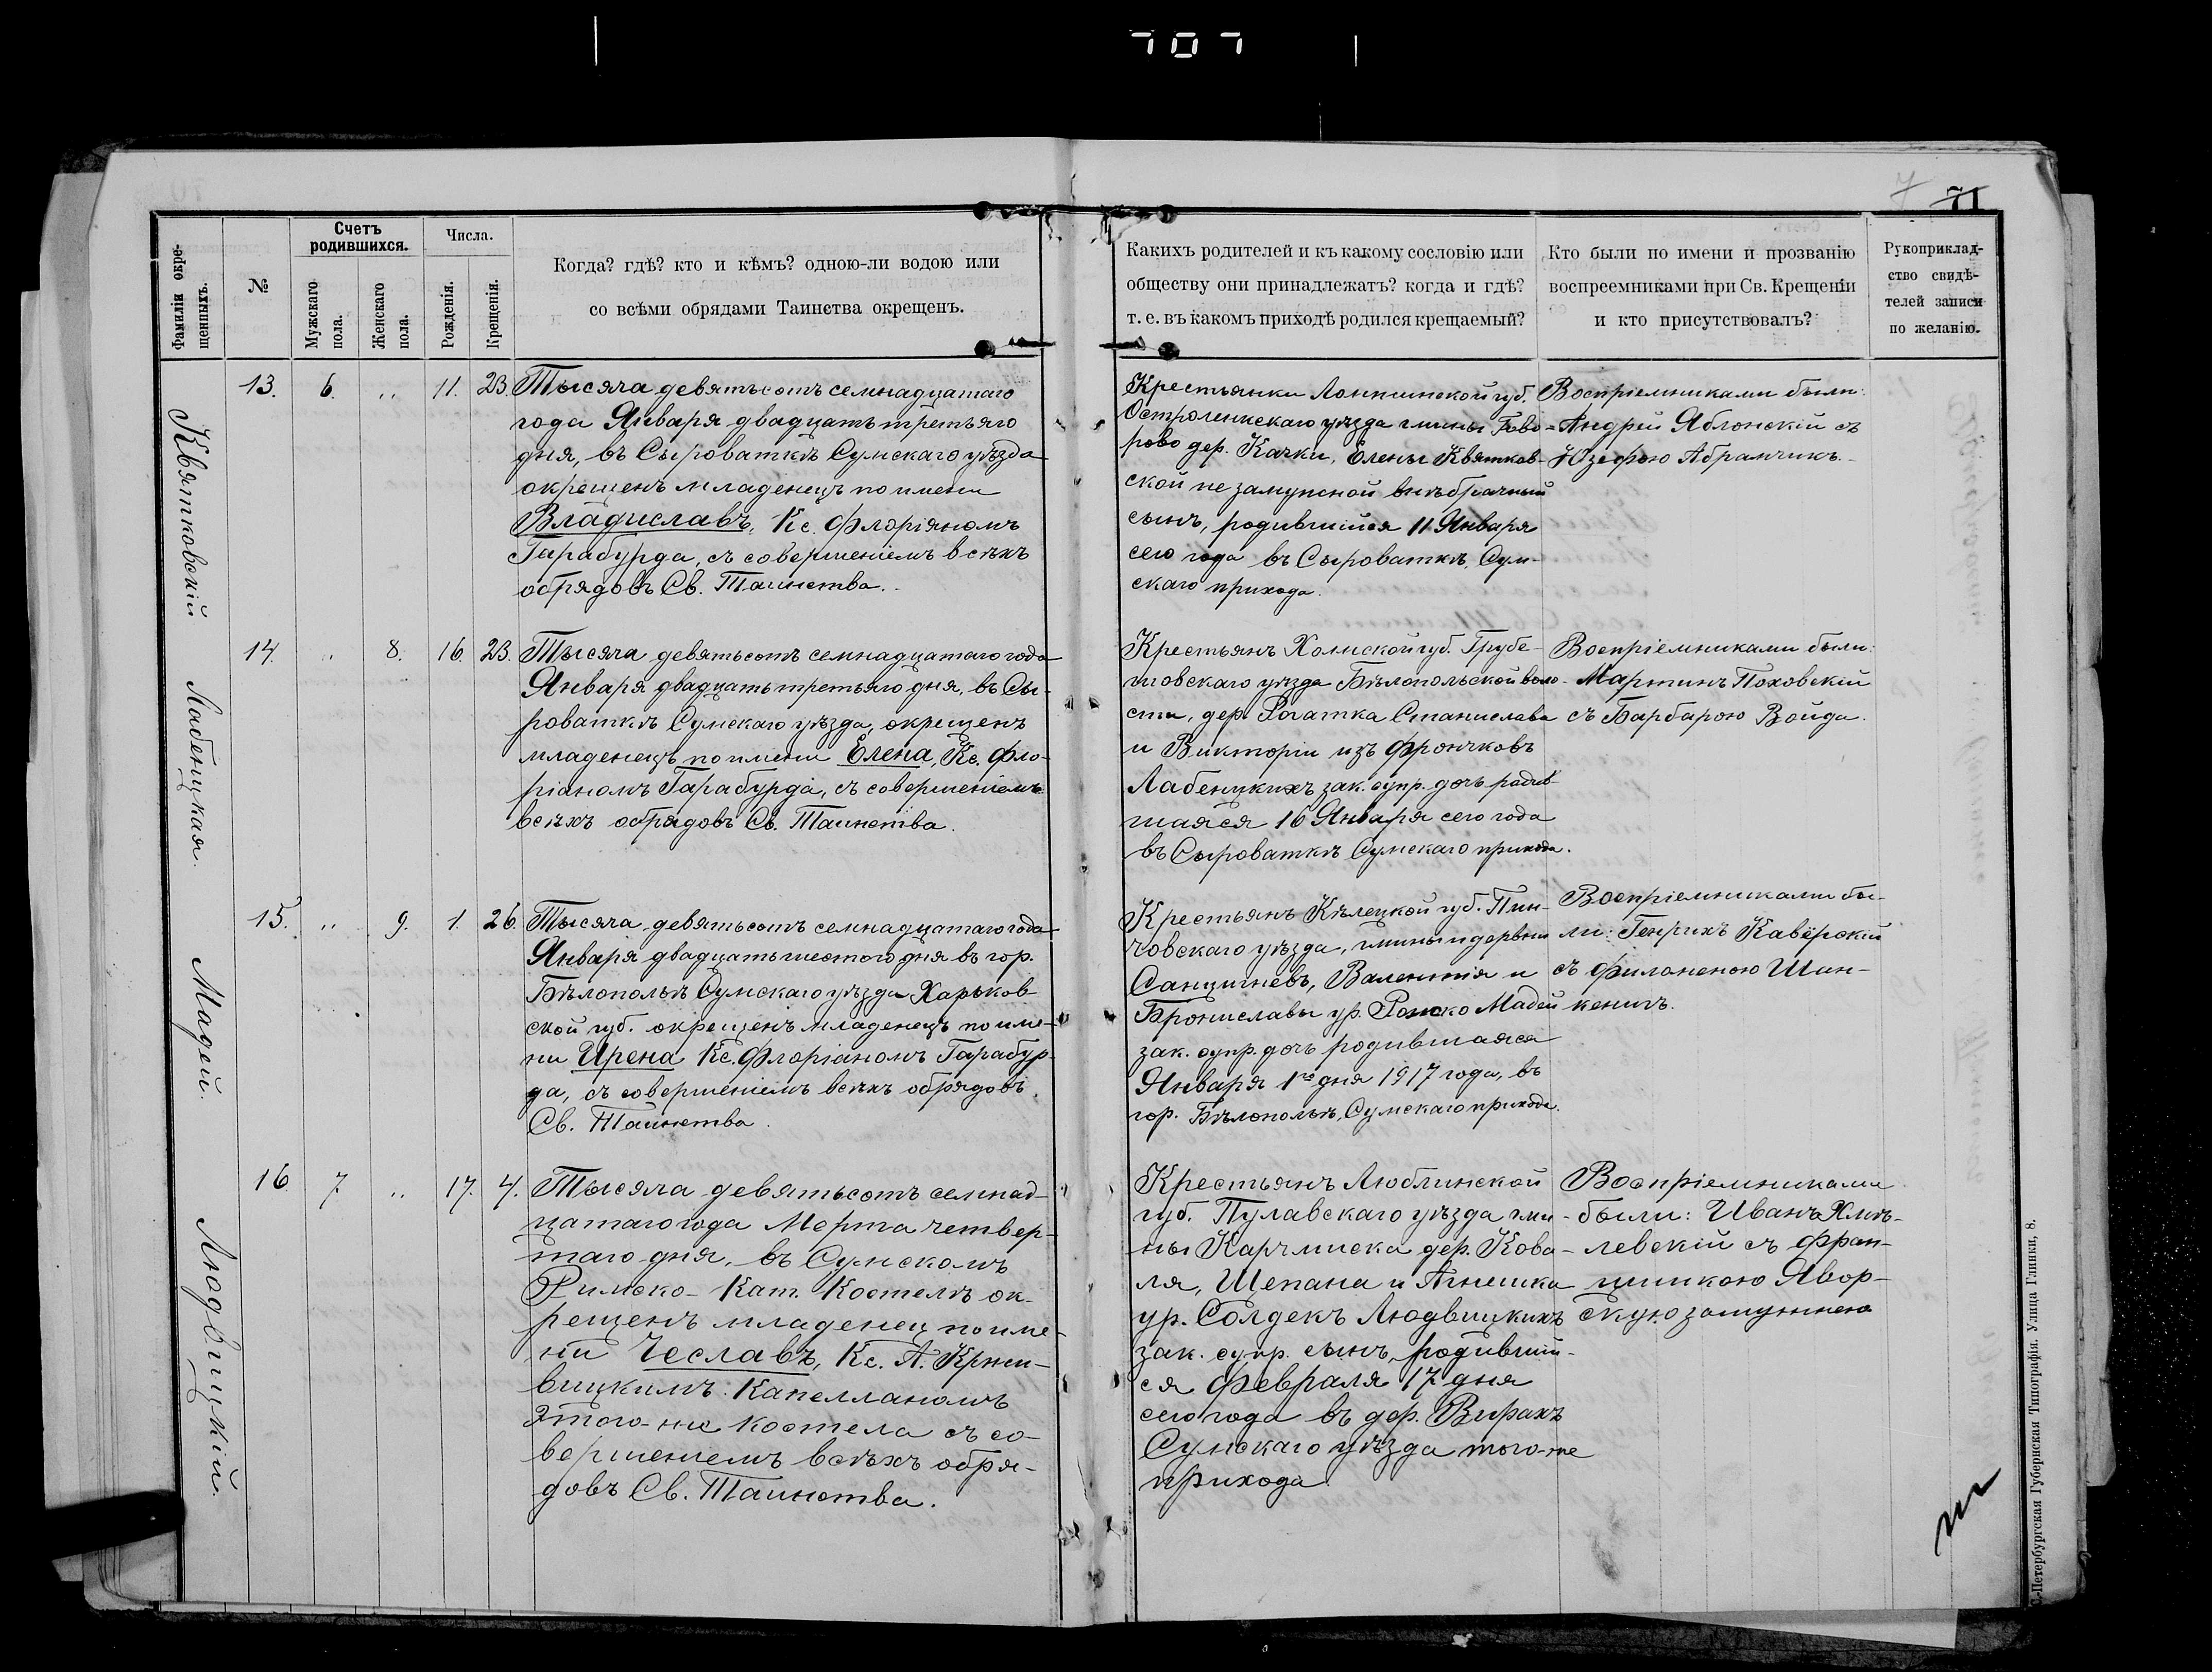 707
7 71
Фамиліи окре-
щенныхъ.
№
Счетъ
родившихся.
Мужскаго
пола.
Женскаго
пола.
Числа.
Рожденія.
Крещенія.
Когда? гдѣ? кто и кѣмъ? одною-ли водою или
со всѣми обрядами Таинства окрещенъ.
Какихъ родителей и къ какому сословію или
обществу они принадлежатъ? когда и гдѣ?
т. е. въ какомъ приходѣ родился крещаемый?
Кто были но имени и прозванію
воспреемниками при Св. Крещеніи
и кто присутствовалъ?
Рукоприклад-
ство свидѣ-
телей записи
по желанію.
Квятковскій
13. 6. „ 11. 23.
Тысяча девятьсотъ семнадцатаго
года Января двадцать третьяго
дня, въ Сыроваткѣ Сумскаго уѣзда
окрещенъ младенецъ по имени
Владиславъ, Кс. Флоріяномъ
Гарабурда, съ совершеніемъ всѣхъ
обрядовъ Св. Таинства.
Крестьянки Ломжинской губ.
Остроленкскаго уѣзда гмины Гово-
рово дер. Качки, Елены Квятков-
ской незамужной внѣбрачный
сынъ, родившійся 11 Января
сего года въ Сыроваткѣ, Сум-
скаго прихода.
Воспріемниками были:
Андрей Яблонскій съ
Юзефою Абрамчикъ.
Лабенцкая.
14. „ 8. 16. 23.
Тысяча девятьсотъ семнадцатаго года
Января двадцать третьяго дня, въ Сы-
роваткѣ Сумскаго уѣзда, окрещенъ
младенецъ по имени Елена, Кс. Фло-
ріаномъ Гарабурда, съ совершеніемъ
всѣхъ обрядовъ Св. Таинства.
Крестьянъ Холмской губ. Грубе-
шовскаго уѣзда Бѣлопольской воло-
сти, дер. Рогатка Станислава
и Викторіи изъ Фрончковъ
Лабенцкихъ зак. супр. дочь родив-
шаяся 16 Января сего года
въ Сыроваткѣ Сумскаго прихода.
Воспріемниками были:
Мартинъ Поховскій
съ Барбарою Войда.
Мадей.
15. „ 9. 1. 26.
Тысяча девятьсотъ семнадцатаго года
Января двадцать шестого дня въ гор.
Бѣлопольѣ Сумскаго уѣзда Харьков-
ской губ. окрещенъ младенецъ по име-
ни Ирена Кс. Флоріаномъ Гарабур-
да, съ совершеніемъ всѣхъ обрядовъ
Св. Таинства.
Крестьянъ Кѣлецкой губ. Пин-
човскаго уѣзда, гмины и деревни
Санцигневъ, Валентія и
Брониславы ур. Ромско Мадей
зак. супр. дочь родившаяся
Января 1го дня 1917 года, въ
гор. Бѣлопольѣ, Сумскаго прихода.
Воспріемниками бы-
ли: Генрихъ Каверскій
съ Филоменою Шин-
кеничъ.
Людвицкій.
16 7 „ 17. 4.
Тысяча девятьсотъ семнад-
цатаго года Марта четвер-
таго дня, въ Сумскомъ
Римско-Кат. Костелѣ ок-
рещенъ младенец по име-
ни Чеславъ, Кс. А. Кржи-
вицкимъ Капелланомъ
этого-же костела съ со-
вершеніемъ всѣхъ обря-
довъ Св. Таинства.
Крестьянъ Люблинской
губ. Пулавскаго уѣзда гми-
ны Карчмиска дер. Кова-
ля, Щепана и Агнешка
ур. Солдекъ Людвицкихъ
зак. супр. сынъ, родивший-
ся Февраля 17 дня
сего года въ дер. Вирахъ
Сумскаго уѣзда того-же
прихода.
Воспріемниками
были: Иванъ Хмѣ-
левскій съ Фран-
цишкою Явор-
скую замужнею
С.-Петербургская Губернская Типографія. Улица Глинки, 8.